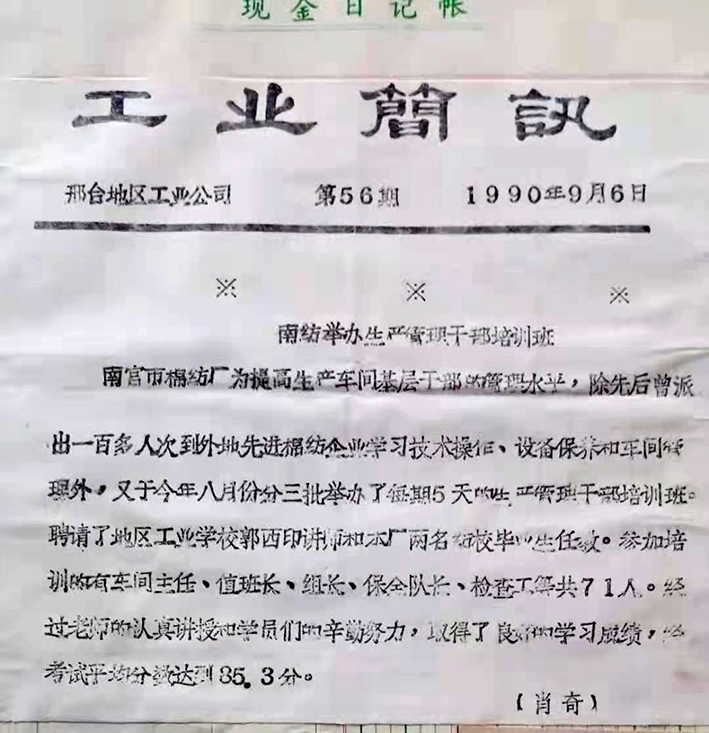 现金日记帐
工业簡訊
邢台地区工业公司 第56期 1990年9月6日
※ ※ ※
南纺举办生产管理干部培训班
南宫市棉纺厂为提高生产车间基层干部的管理水平，除先后曾派
出一百多人次到外地先进棉纺企业学习技术操作、设备保养和车间管
理外，又于今年八月份分三批举办了每期5天的生产管理干部培训班。
聘请了地区工业学校郭西印讲师和本厂两名纺校毕业生任教。参加培
训的有车间主任、值班长、组长、保全队长、检查工等共71人。经
过老师的认真讲授和学员们的辛勤努力，取得了良好的学习成绩，经
考试平均分数达到85.3分。
（肖奇）